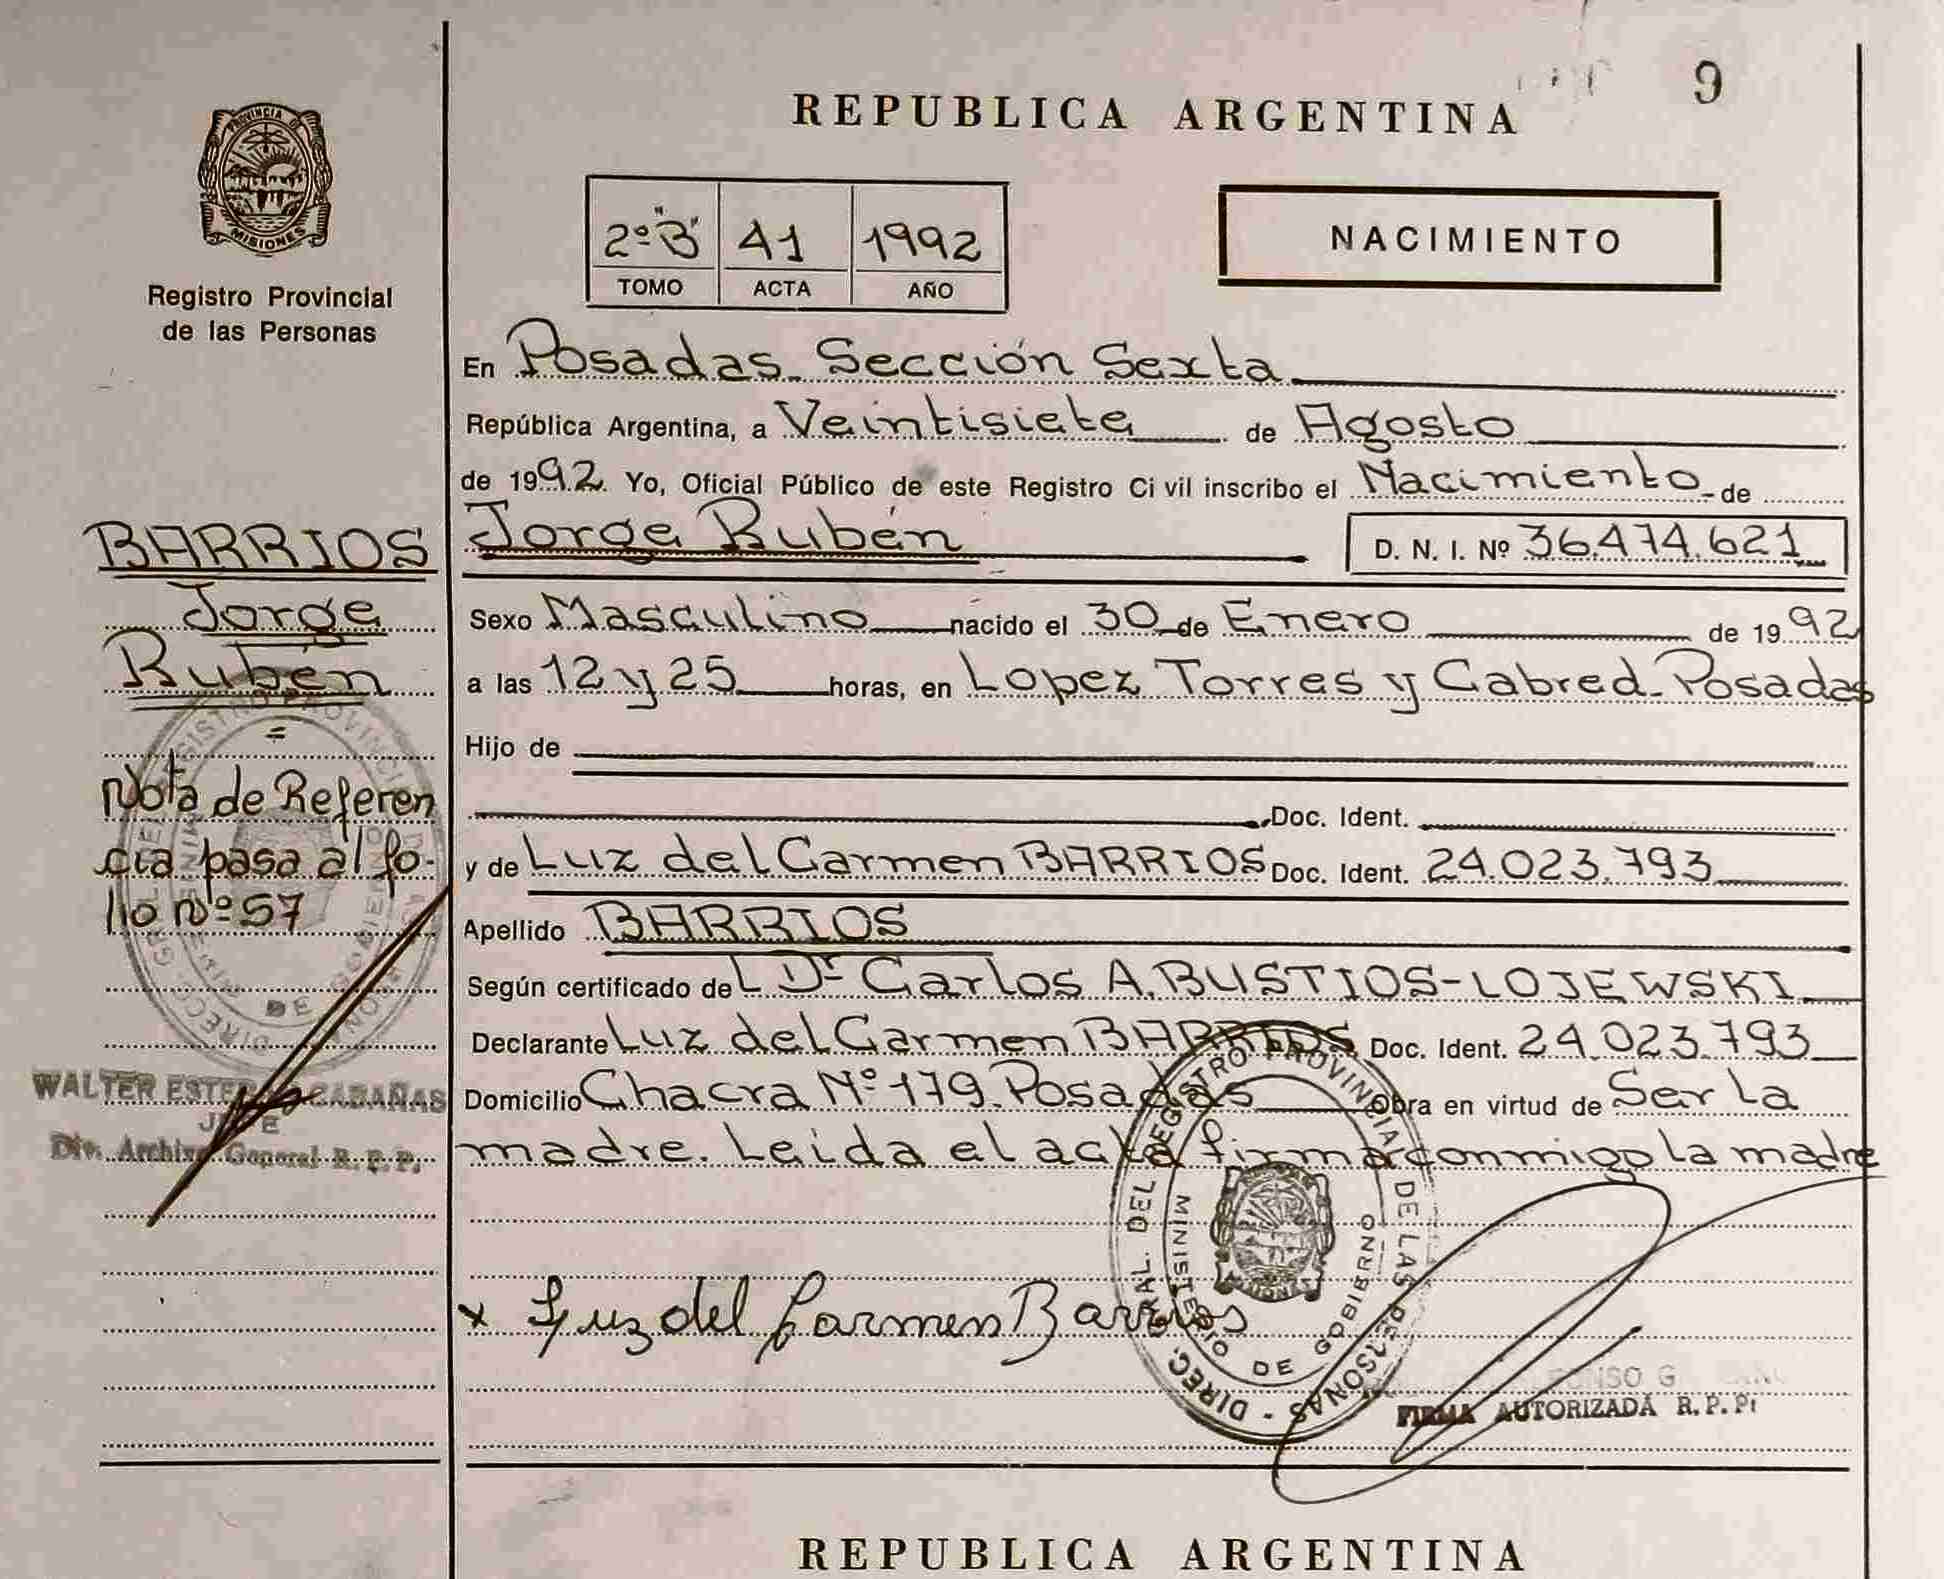 9
REPUBLICA ARGENTINA
PROVINCIA DE
MISIONES
Registro Provincial
de las Personas
2º "B" 41 1992
TOMO ACTA AÑO
NACIMIENTO
En Posadas Sección Sexta
República Argentina, a Veintisiete de Agosto
de 1992 Yo, Oficial Público de este Registro Civil inscribo el Nacimiento de
Jorge Rubén D. N. I. Nº 36.474.621
Sexo Masculino nacido el 30 de Enero de 1992
a las 12 y 25 horas, en Lopez Torres y Cabred-Posadas
Hijo de
Doc. Ident.
y de Luz del Carmen BARRIOS Doc. Ident. 24.023.793
Apellido BARRIOS
Según certificado del Dr Carlos A. BUSTIOS-LOJEWSKI
Declarante Luz del Carmen BARRIOS Doc. Ident. 24.023.793
Domicilio Chacra Nº 179 Posadas Obra en virtud de Ser la
madre. Leida el acta firma conmigo la madre
x Luz del Carmen Barrios
DIREC. GRAL. DEL REGISTRO PROVINCIAL DE LAS PERSONAS
MINISTERIO DE GOBIERNO
FIRMA AUTORIZADA R. P. P.
BARRIOS
Jorge
Rubén
=
Nota de Referen
cia pasa al fo-
lio nº 57
WALTER CABAÑAS
JEFE
Div. Archivo General R. P. P.
REPUBLICA ARGENTINA